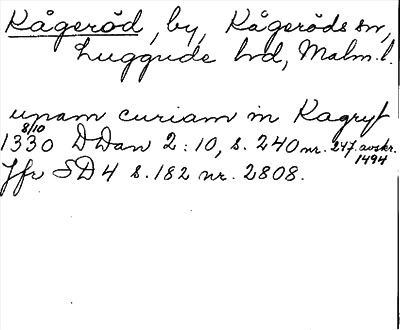 Kågeröd, by, Kågeröds sn,
Luggude hd, Malm. l.
unam curiam in Kagryt
1330 8/10 DDan 2:10, s. 240 nr. 247. avskr. 1494
Jfr SD 4 s. 182 nr. 2808.